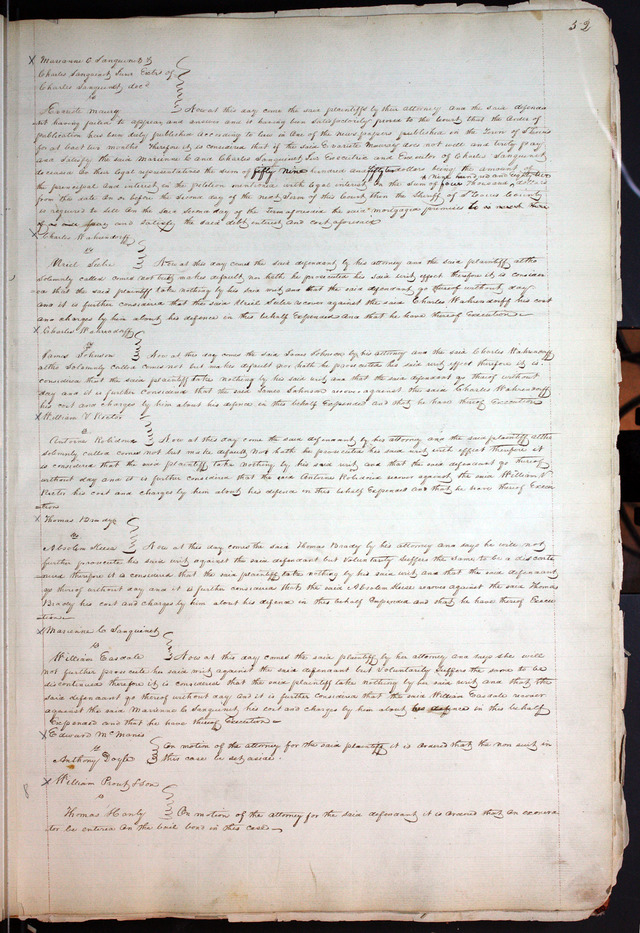 52
X Marianne C Sanguinet &
Charles Sanguinet Junr Exctrs of
Charles Sanguinet decd
vs
Evariste Maury } Now at this day come the said plaintiffs by their attorney and the said defenda
nt having failed to appear and answer and it having been satisfactorily proved to the Court, that the Order of
publication has been duly published according to law in one of the news papers published in the Town of St Louis
for at least two months Therefore it is considered that if the said Evariste Maury does not well and truly pay
and satisfy the said Marianne C and Charles Sanguinet Jur Executrix and Executor of Charles Sanguinet
deceased or their legal representatives the sum of fifty nine hundred and fifty two dollars being the amount of
the principal and interest in the petition mentioned with legal interest on the sum of four thousand nine hundred and eighty two dollars
from this date on or before the second day of the next Term of this Court then the Sheriff of St Louis County
is required to sell on the said second day of the Term aforesaid the said mortgaged premises
and satisfy the said debt interest and cost aforesaid
X Charles Wahrendorff
vs
Uriel Sebree } Now at this day comes the said defendant by his attorney and the said plaintiff altho
solemnly called comes not but makes default, nor hath he prosecuted his said writ with effect therefore it is consider
ed that the said plaintiff take nothing by his said writ and that the said defendant go thereof without day
and it is further considered that the said Uriel Sebree recover against the said Charles Wahrendorff his cost
and charges by him about his defence in this behalf Expended and that he have thereof Execution
X Charles Wahrendorff
vs
James Johnson } Now at this day come the said James Johnson by his attorney and the said Charles Wahrendorff
altho Solemnly called comes not but makes default nor hath he prosecuted his said writ with effect therefore it is
considered that the said plaintiff take nothing by his said writ and that the said defendant go thereof without
day and it is further considered that the said James Johnson recover against the said Charles Wahrendorff
his cost and charges by him about his defence in this behalf Expended and that he have thereof Execution
X William V Rector
vs
Antoine Robidoux } Now at this day come the said defendant by his attorney and the said plaintiff altho
solemnly called comes not but make default Nor hath he prosecuted his said writ with effect therefore it
is considered that the said plaintiff take nothing by his said writ and that the said defendant go thereof
without day and it is further considered that the said Antoine Robidoux recover against the said William V
Rector his cost and charges by him about his defence in this behalf Expended and that he have thereof Execu
tion
X Thomas Brady
vs
Absolem Keese } Now at this day comes the said Thomas Brady by his attorney and says he will not
further prosecute his said writ against the said defendant but Voluntarily Suffers the same to be a discontin
ued therefore it is considered that the said plaintiff take nothing by his said writ and that the said defendant
go thereof without day and it is further considered that the said Absolem Keese recover against the said Thomas
Brady his cost and charges by him about his defence in this behalf Expended and that he have thereof Execu
tion
X Marianne C Sanguinet
vs
William Easdale } Now at this day comes the said plaintiff by her attorney and says she will
not further prosecute her said writ against the said defendant but Voluntarily Suffers the same to be
discontinued therefore it is considered that the said plaintiff take nothing by her said writ and that the
said defendant go thereof without day and it is further considered that the said William Easdale recover
against the said Marianne C Sanguinet, his cost and charges by him about his defence in this behalf
Expended and that he have thereof Execution
X Edward McManis
vs
Anthony Doyle } On motion of the attorney for the said plaintiff it is ordered that the non suit in
this case be set aside
X William Prout & Son
vs
Thomas Hanly } On motion of the attorney for the said defendant it is ordered that an exonera
tur be entered on the bail bond in this case